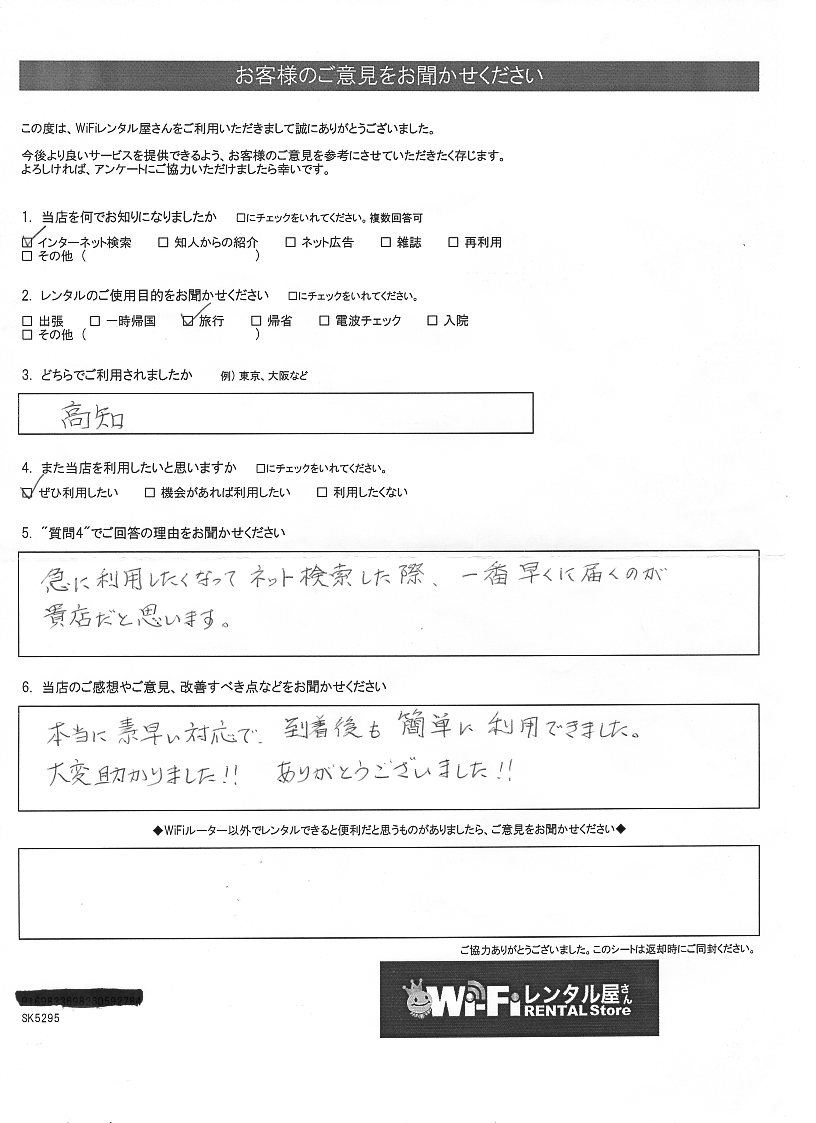 お客様のご意見をお聞かせください
この度は、WiFiレンタル屋さんをご利用いただきまして誠にありがとうございました。
今後より良いサービスを提供できるよう、お客様のご意見を参考にさせていただきたく存じます。
よろしければ、アンケートにご協力いただけましたら幸いです。
1. 当店を何でお知りになりましたか □にチェックをいれてください。複数回答可
☑ インターネット検索 □ 知人からの紹介 □ ネット広告 □ 雑誌 □ 再利用
□ その他 ( )
2. レンタルのご使用目的をお聞かせください □にチェックをいれてください。
□ 出張 □ 一時帰国 ☑ 旅行 □ 帰省 □ 電波チェック □ 入院
□ その他 ( )
3. どちらでご利用されましたか 例) 東京、大阪など
高知
4. また当店を利用したいと思いますか □にチェックをいれてください。
☑ ぜひ利用したい □ 機会があれば利用したい □ 利用したくない
5. "質問4"でご回答の理由をお聞かせください
急に利用したくなってネット検索した際、一番早くに届くのが
貴店だと思います。
6. 当店のご感想やご意見、改善すべき点などをお聞かせください
本当に素早い対応で、到着後も簡単に利用できました。
大変助かりました!! ありがとうございました!!
◆WiFiルーター以外でレンタルできると便利だと思うものがありましたら、ご意見をお聞かせください◆
ご協力ありがとうございました。このシートは返却時にご同封ください。
SK5295
Wi-Fiレンタル屋さん
RENTAL Store